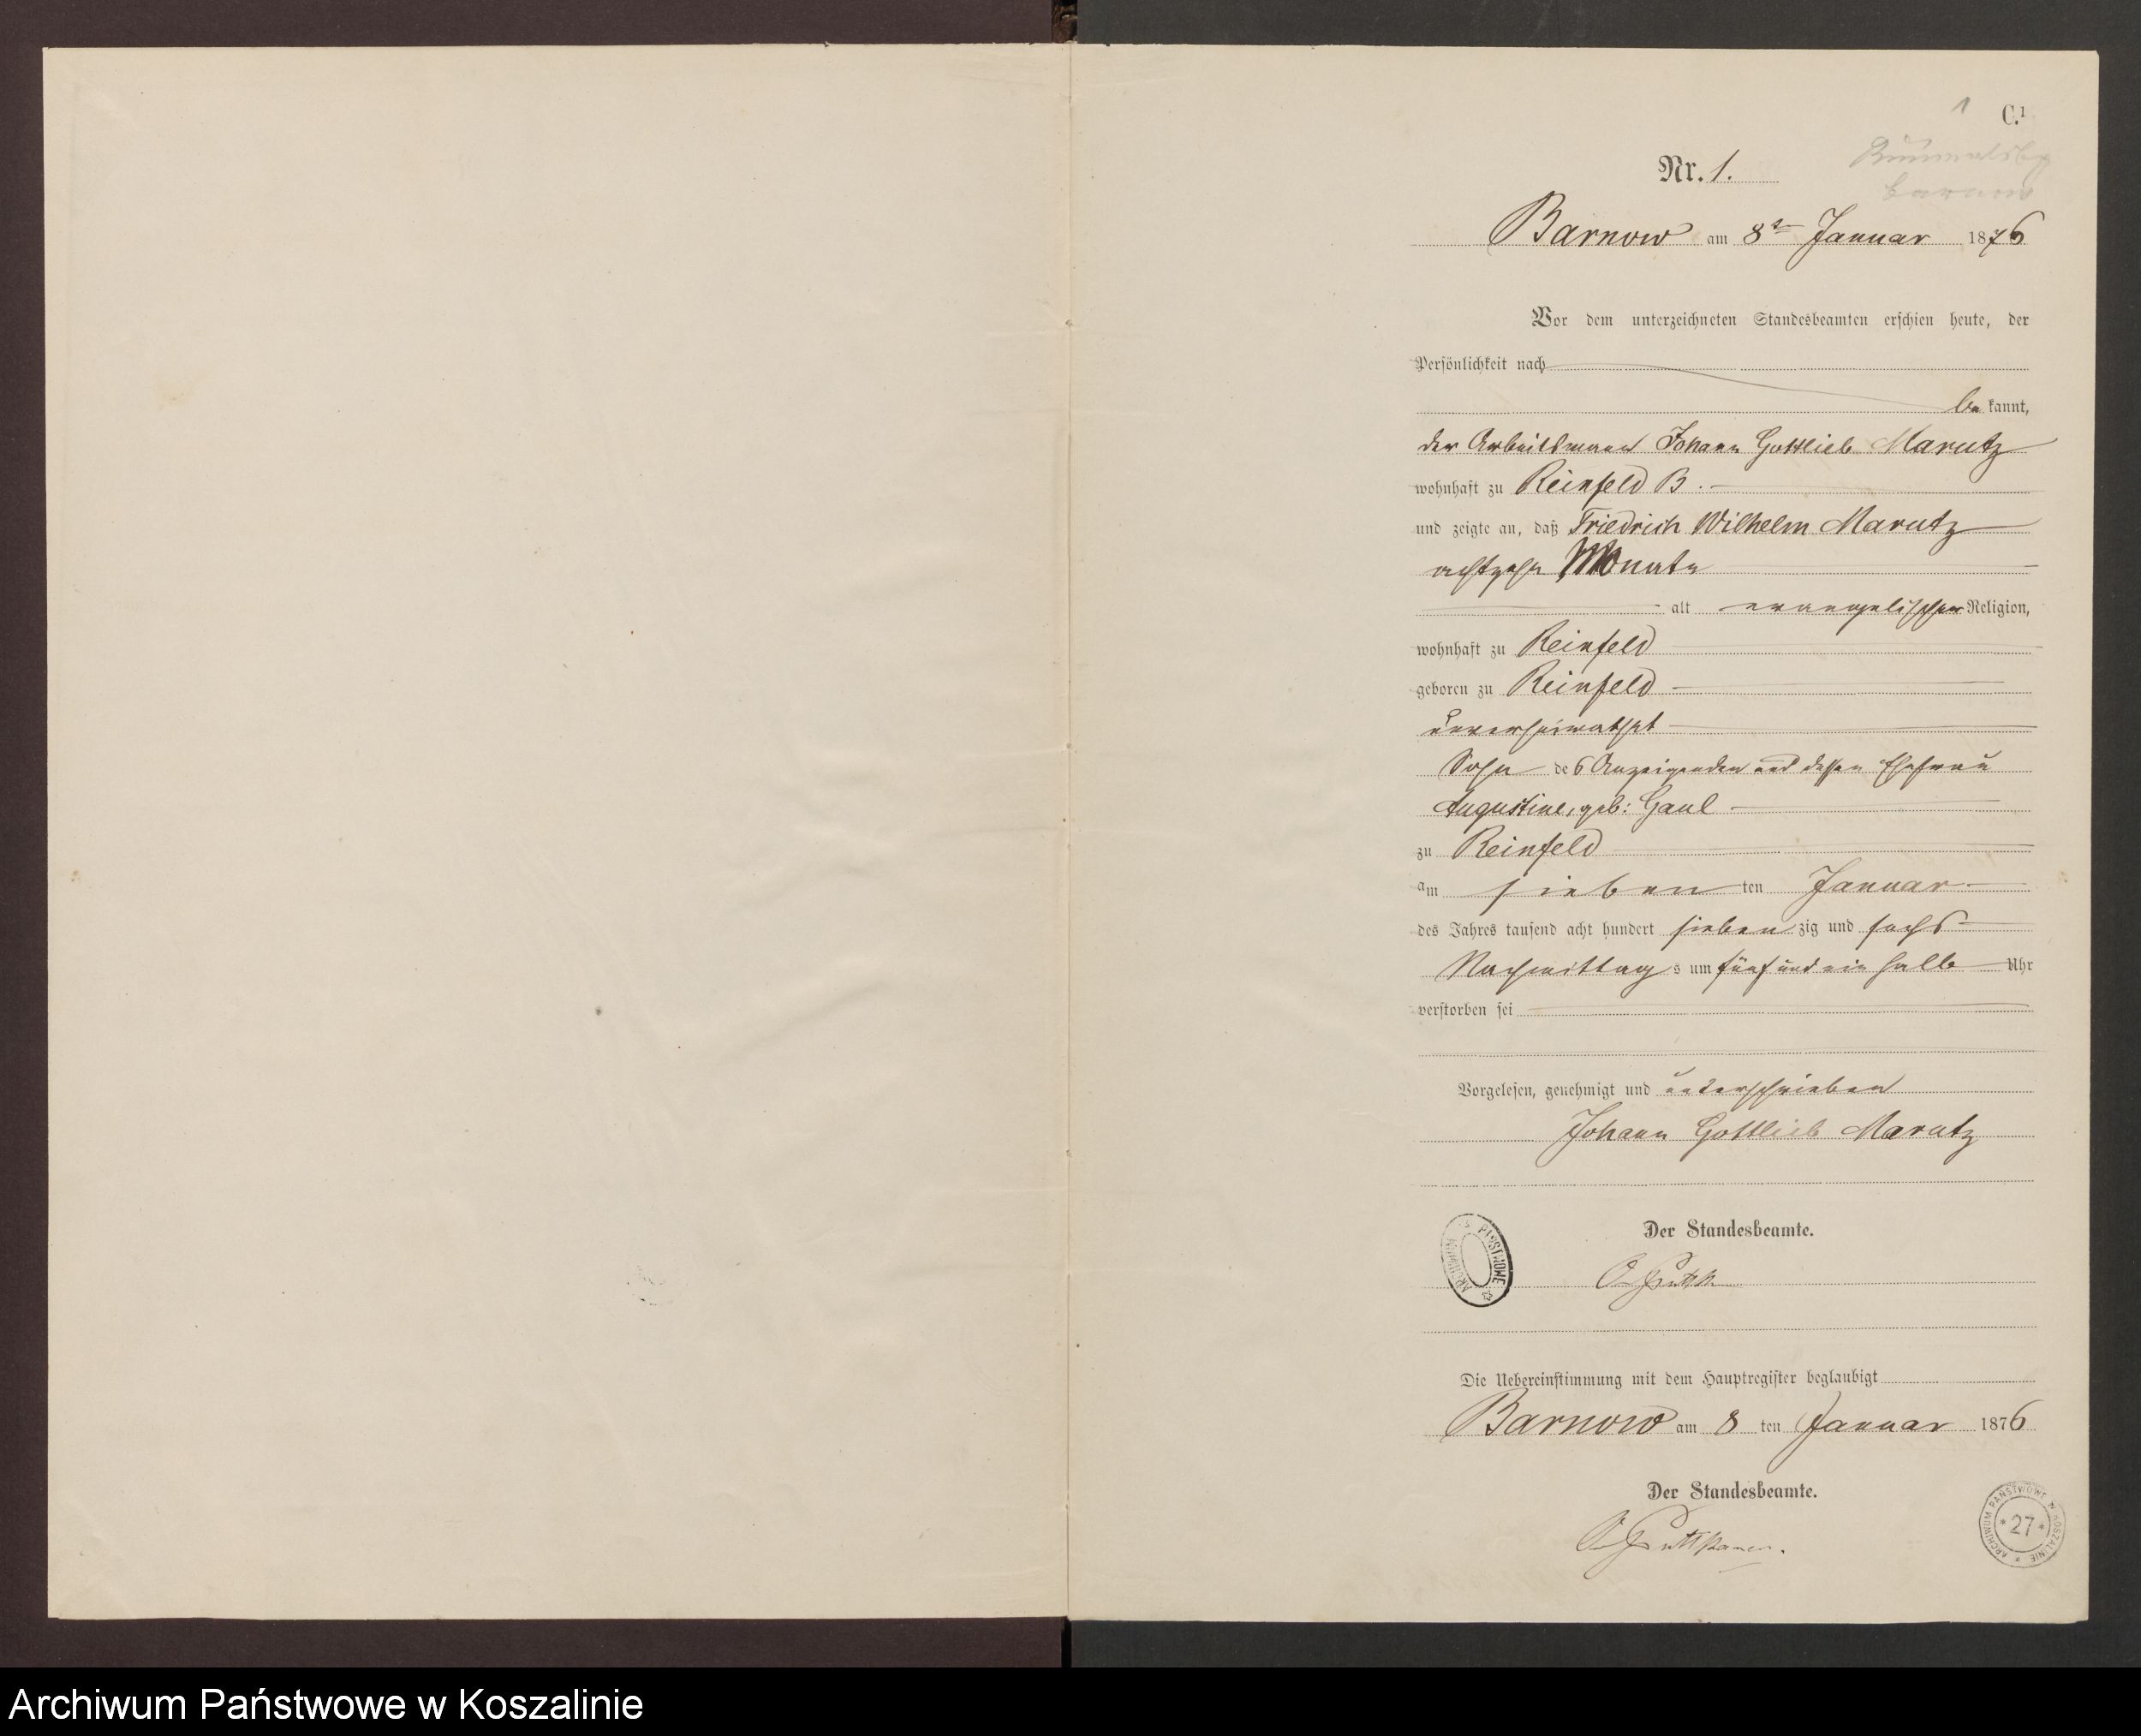 1
C.¹
Nr. 1.
Barnow am 8ten Januar 1876
Vor dem unterzeichneten Standesbeamten erschien heute, der
Persönlichkeit nach
be kannt,
der Arbeitsmann Johann Gottlieb Marutz
wohnhaft zu Reinfeld B.
und zeigte an, daß Friedrich Wilhelm Marutz
achtzehn Monate
alt evangelischer Religion,
wohnhaft zu Reinfeld
geboren zu Reinfeld
unverheirathet
Sohn des Anzeigenden und dessen Ehefrau
Augustine, geb: Gaul
zu Reinfeld
am sieben ten Januar
des Jahres tausend acht hundert sieben zig und sechs
Nachmittag s um fünf und ein halb Uhr
verstorben sei
Vorgelesen, genehmigt und unterschrieben
Johann Gottlieb Marutz
Der Standesbeamte.
ARCHIWUM PAŃSTWOWE
Die Uebereinstimmung mit dem Hauptregister beglaubigt
Barnow am 8 ten Januar 1876
Der Standesbeamte.
Puttkamer.
ARCHIWUM PAŃSTWOWE W KOSZALINIE * 27 *
Archiwum Państwowe w Koszalinie